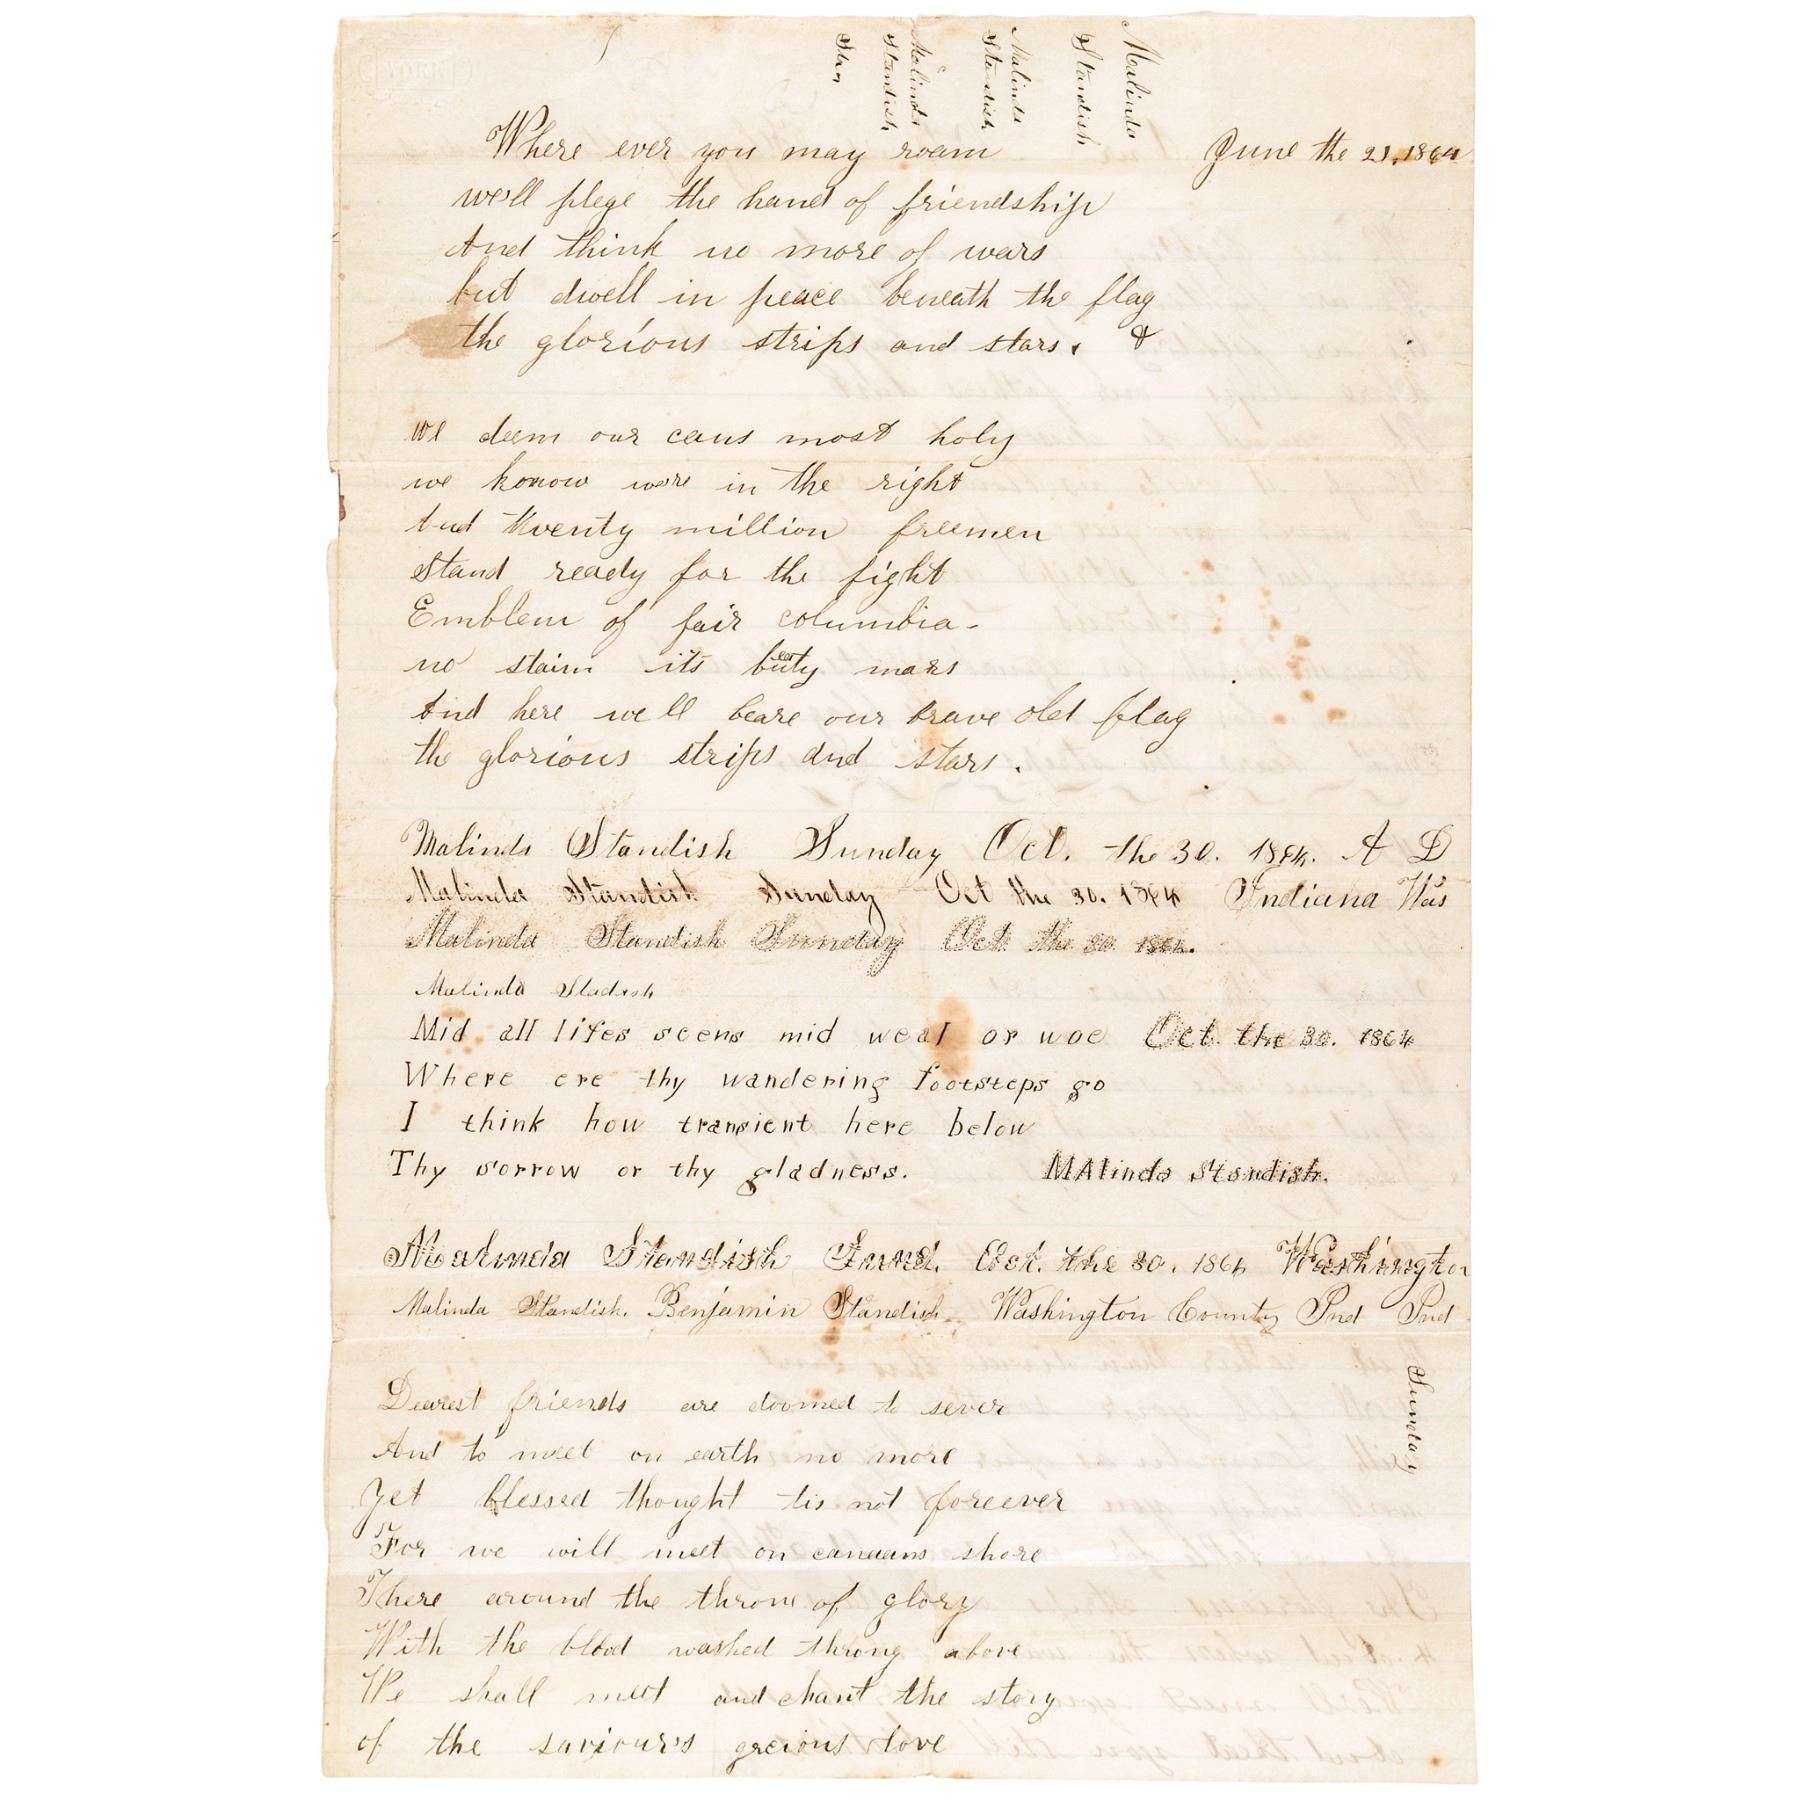 Malinda
Standish
Malinda
Standish
Malinda
Standish
Where ever you may roam June the 21. 1864
we'll plege the hand of friendship
And think no more of wars
but dwell in peace beneath the flag
the glorious strips and stars. &
we deem our caus most holy
we konow were in the right
And twenty million freemen
stand ready for the fight
Emblem of fair columbia-
no stain its beauty mars
And here we ll beare our brave old flag
the glorious strips and stars.
Malinda Standish Sunday Oct. the 30. 1864. A D
Malinda Standish Sunday Oct the 30. 1864 Indiana Was
Malinda Standish Sunday Oct. the 30 1864.
Malinda Stadish
Mid all lifes scens mid weal or woe Oct. the 30. 1864
Where ere thy wandering footsteps go
I think how transient here below
Thy sorrow or thy gladness. MAlinda Standish.
Malinda Standish Sund. Oct. the 30. 1864 Washington
Malinda Standish. Benjamin Standish. Washington County Ind Ind
Sunday
Dearest friends are doomed to sever
And to meet on earth no more
Yet blessed thought tis not foreever
For we will meet on canaans shore
There around the throne of glory
With the blood washed throng above
We shall meet and chant the story
of the saviour's grecious love